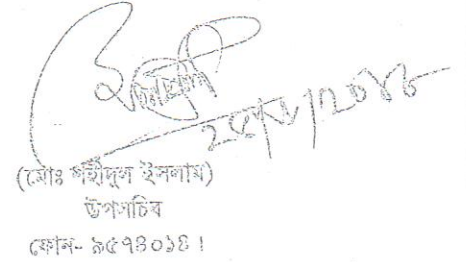 (মোঃ শহীদুল ইসলাম)
উপসচিব
ফোন- ৯৫৭৪০১৪।